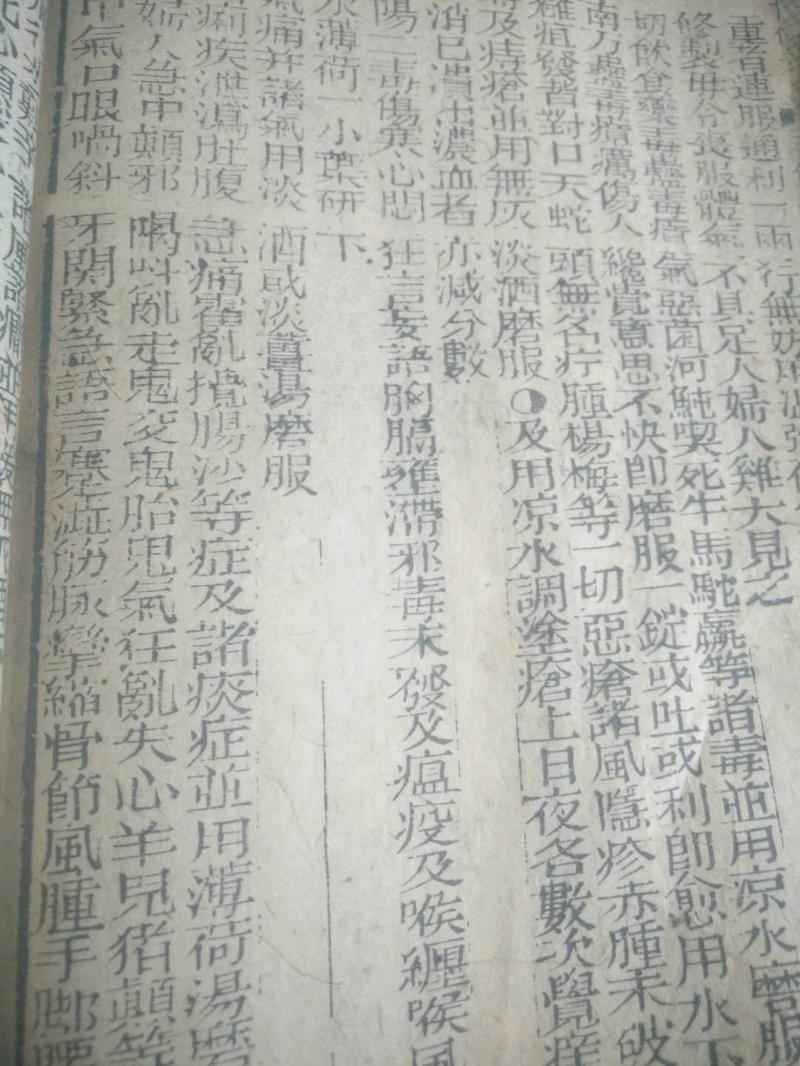 重者連服通利一兩行無妨用溫
修製毋分喪服體氣不具足人婦人雞犬見之
切飲食藥毒蠱毒瘴氣惡菌河魨喫死牛馬駝驘等諸毒並用凉水磨服
南方蠱毒瘴癘傷人纔覺意思不快即磨服一錠或吐或利即愈用水下
癰疽發背對口天蛇頭無名疔腫楊梅等一切惡瘡諸風隱疹赤腫未破
及痔瘡並用無灰淡酒磨服及用凉水調塗瘡上日夜各數次覺痒
消已潰出濃血者亦減分數
陽二毒傷寒心悶狂言妄語胸膈壅滯邪毒未發及瘟疫及喉纏喉風
水薄荷一小葉研下
氣痛并諸氣用淡酒或淡薑湯磨服
痢疾泄瀉肚腹急痛霍亂攪腸沙等症及諸痰症並用薄荷湯磨
婦人急中顛邪喝叫亂走鬼交鬼胎鬼氣狂亂失心羊兒猪顛等
中氣口眼喎斜牙關緊急語言蹇澁筋脉攣縮骨節風腫手脚腰
諸風諸癇並用